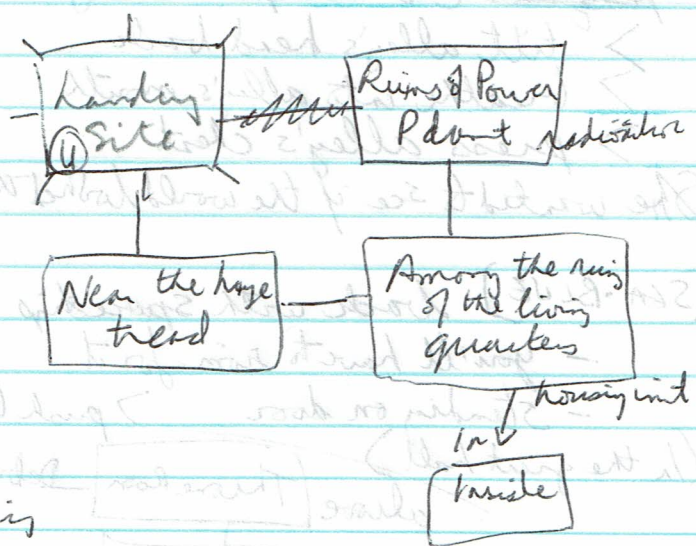 Landing
Site
U
Ruins of Power
Plant
radiation
Near the huge
tread
Among the ruins
of the living
quarters
housing unit
In
Inside